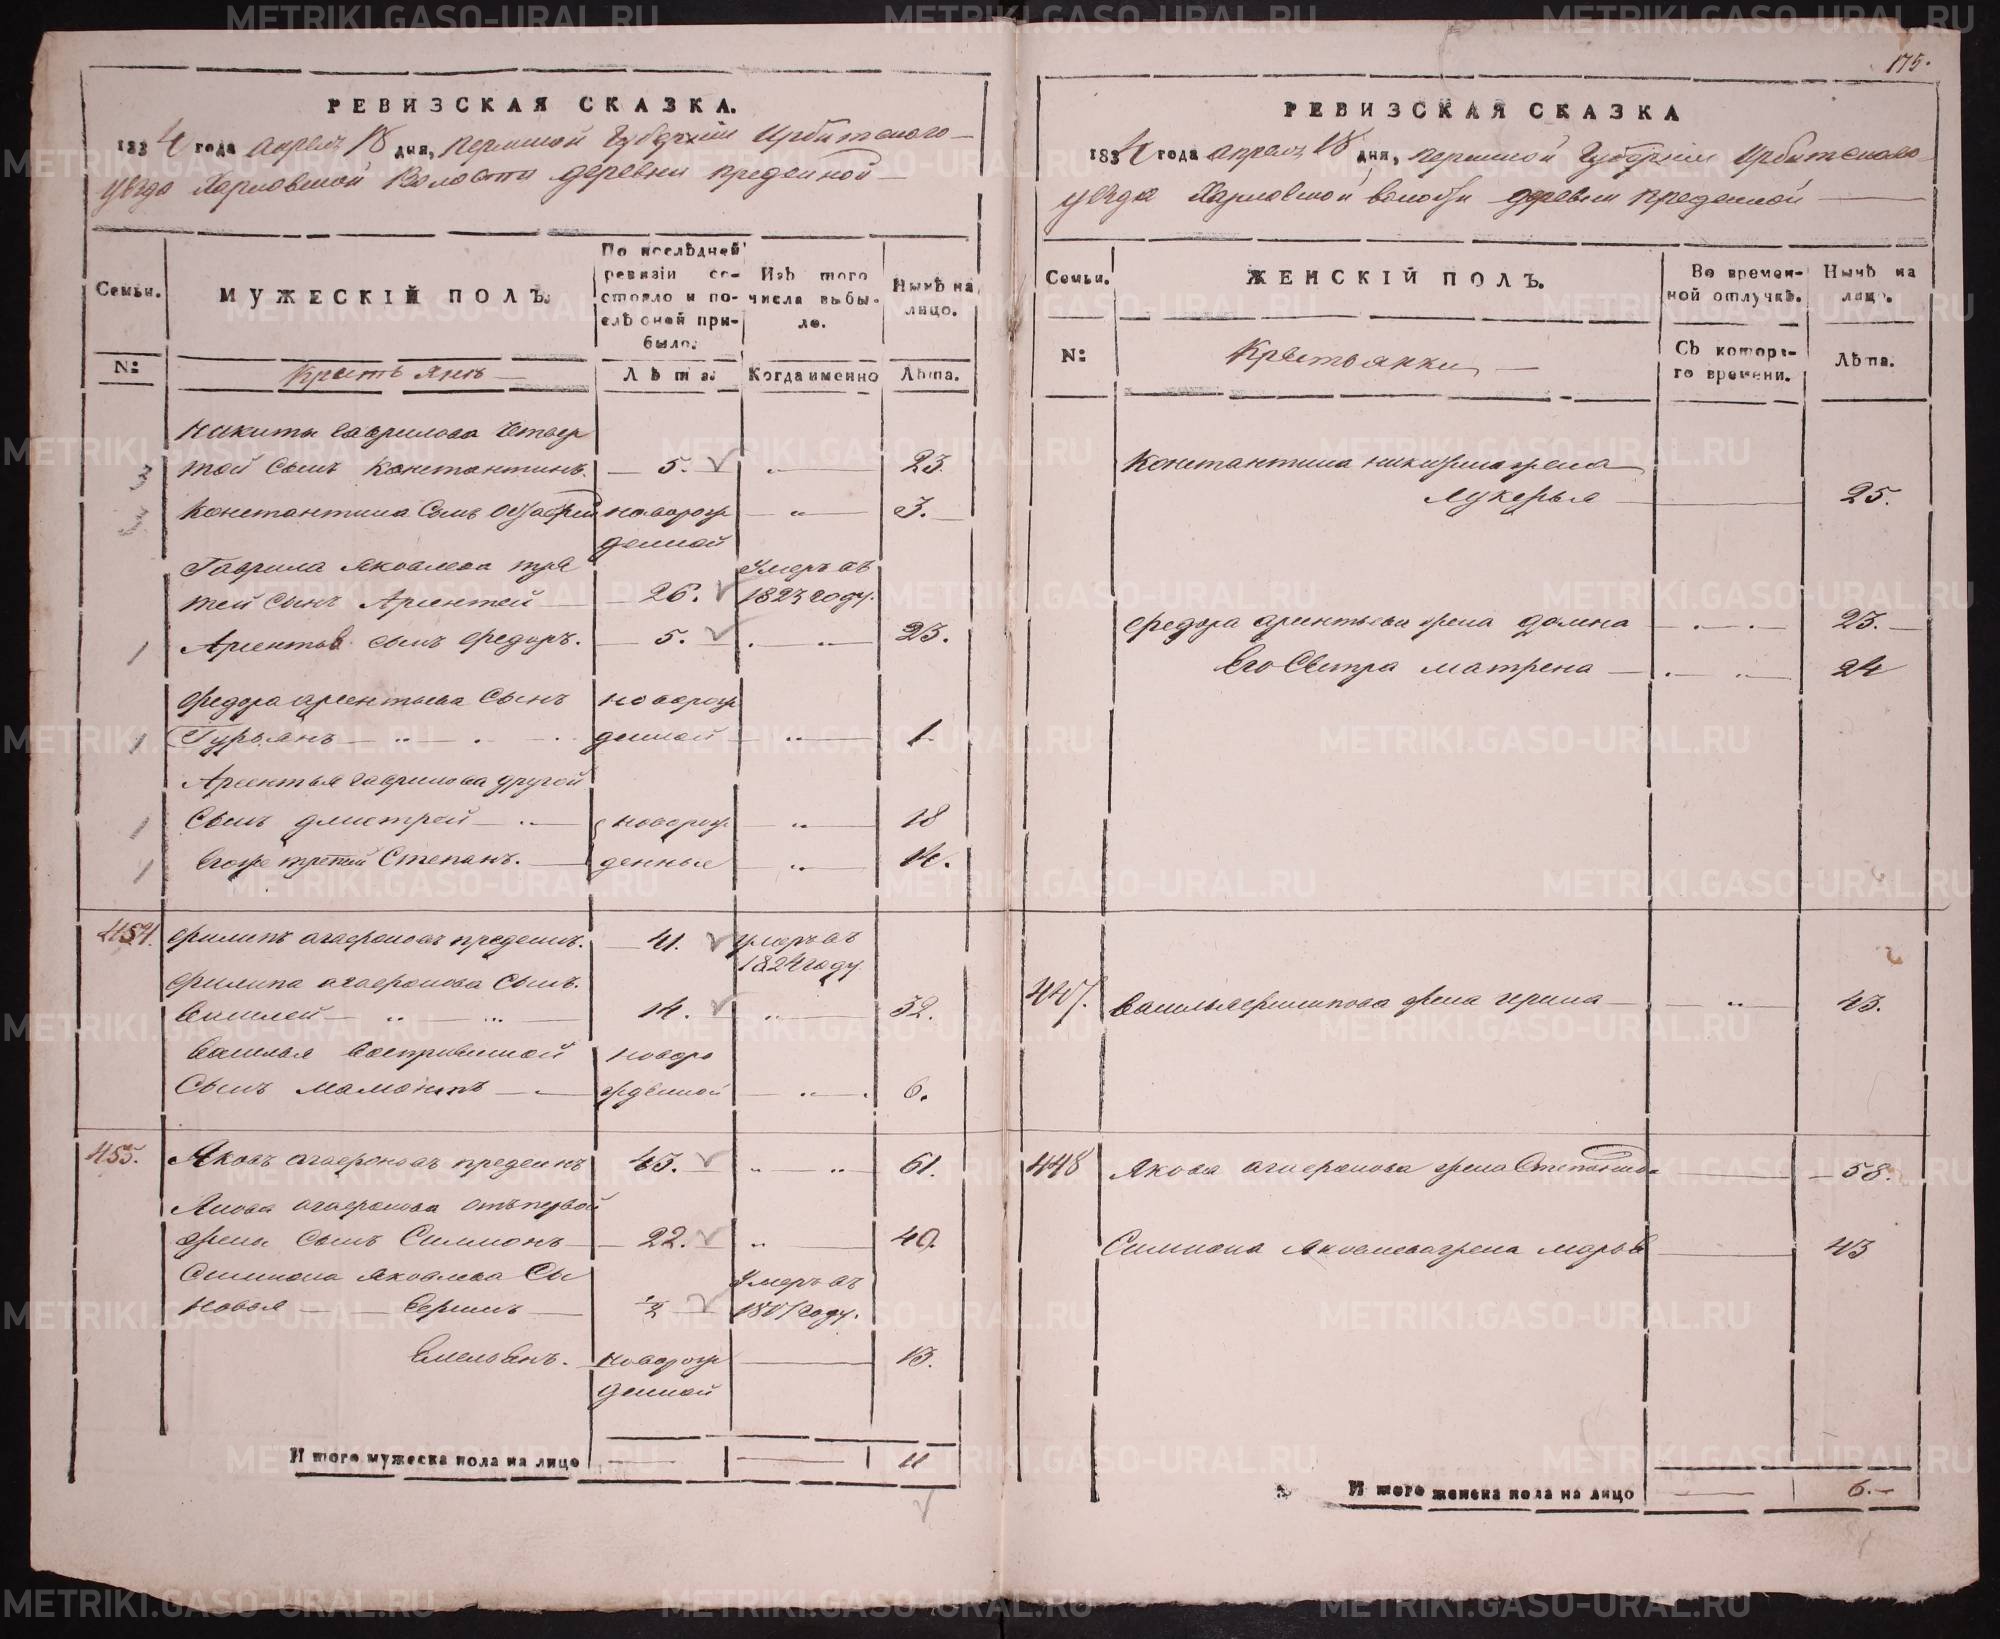 175.
РЕВИЗСКАЯ СКАЗКА.
1834 года апреля 18 дня, пермской Губерніи Ирбитского
уезда Харловской Волости деревни предеиной
Семьи.
МУЖЕСКІЙ ПОЛЪ.
По послѣдней ревизіи состояло и послѣ оной прибыло.
Изъ того числа выбыло.
Нынѣ на лицо.
N:
Крестьянъ
Лѣта.
Когда именно
Лѣта.
Никиты Гаврилова четвер
той сынъ Константинъ. 5. 23.
Константина сынъ новорож 3.
денной
Гаврила Яковлева тре Умеръ въ
тей сынъ Арсентей 26. 1823 году.
Арсентьев сынъ Федоръ. 5. 23.
Федора арсентьева Сынъ новорож
Гурьянъ денной 1.
Арсентья гаврилова другой
Сынъ дмитрей новорож 18
Егоже третей Степанъ. денные 14.
454. Филипъ агафоновъ предеинъ. 41. умеръ въ
1824 году
Филипа агафонова Сынъ.
Василей 14. 32.
Василья новоро
Сынъ мамонтъ жденной 6.
455. Яковъ агафоновъ предеинъ 45. 61.
Якова агафонова отъ первой
жены Сынъ Симионъ 22. 40.
Симиона Яковлева Сы Умеръ въ
новья 1/2 году.
Емельянъ. новорож 13.
денной
Итого мужеска пола на лицо 11
РЕВИЗСКАЯ СКАЗКА
1834 года апреля 18 дня, пермской Губерніи Ирбитского
уезда Харловской волости деревни предеиной
Семьи.
ЖЕНСКІЙ ПОЛЪ.
Во временной отлучкѣ.
Нынѣ на лицо.
N:
Крестьянки
Съ котораго времени.
Лѣта.
Константина никитина жена
Лукерья 25.
Федора арсентьева жена домна 23.
Его Сестра матрена 24
447. Василья филипова жена 43.
448 Якова агафонова жена Степанида 58.
Симиона Яковлева жена марья 43
Итого женска пола на лицо 6.
METRIKI.GASO-URAL.RU